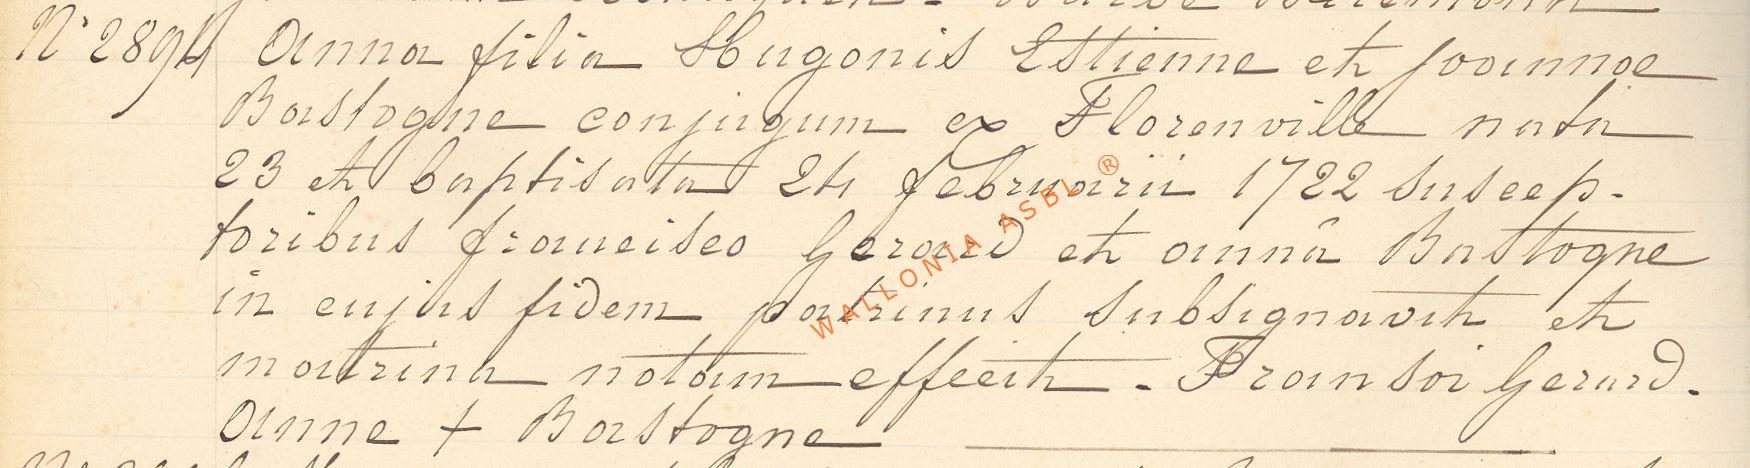 N° 2894 Anna filia Hugonis Estienne et Joannae
Bastogne conjugum ex Florenville nata
23 et baptisata 24 februarii 1722 suscep-
toribus francisco Gerard et annâ Bastogne
in cujus fidem patrinus subsignavit et
matrina notam effecit. Fransoi Gerard.
Anne + Bastogne
WALLONIA ASBL ®